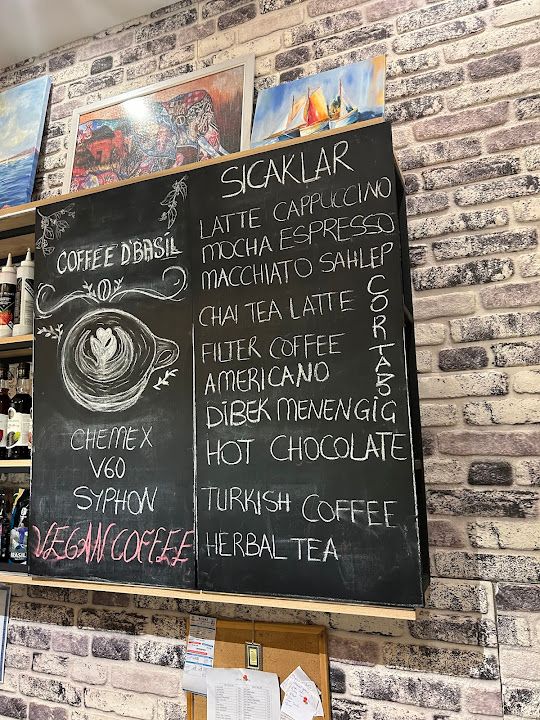 COFFEE D'BASİL
CHEMEX
V60
SYPHON
VEGAN COFFEE
SICAKLAR
LATTE CAPPUCCINO
MOCHA ESPRESSO
MACCHIATO SAHLEP
CHAI TEA LATTE
CORTADO
FILTER COFFEE
AMERICANO
DİBEK MENENGİG
HOT CHOCOLATE
TURKISH COFFEE
HERBAL TEA